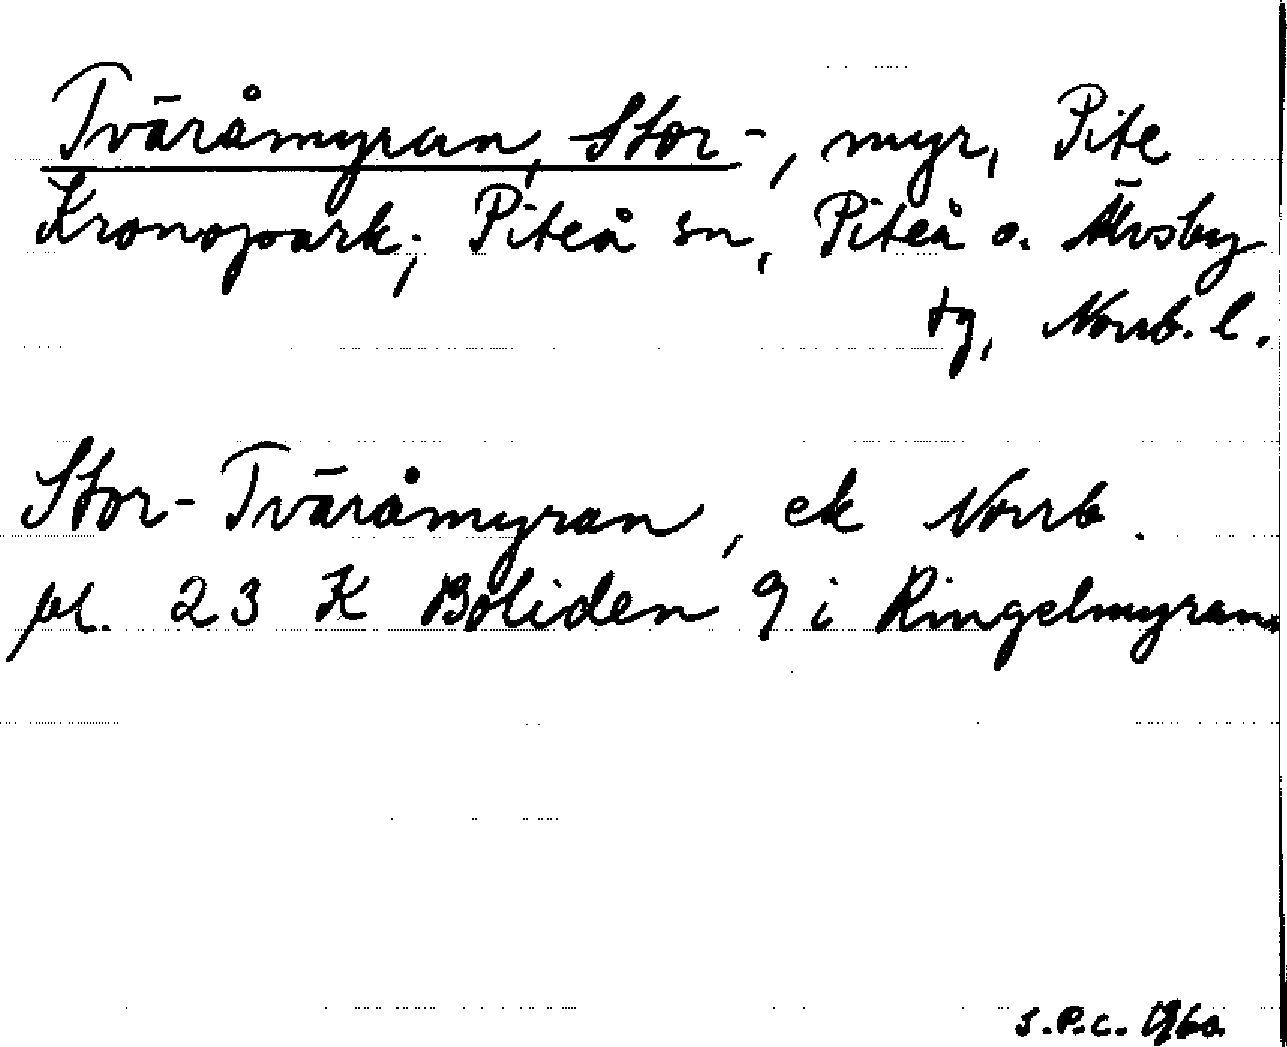 Tväråmyran, Stor-, myr, Pite
Kronopark; Piteå sn, Piteå o. Älvsby
tg, Norrb. l.
Stor-Tväråmyran, ek Norrb.
bl. 23 K Boliden 9 i Ringelmyran.
S.P.C. 1960